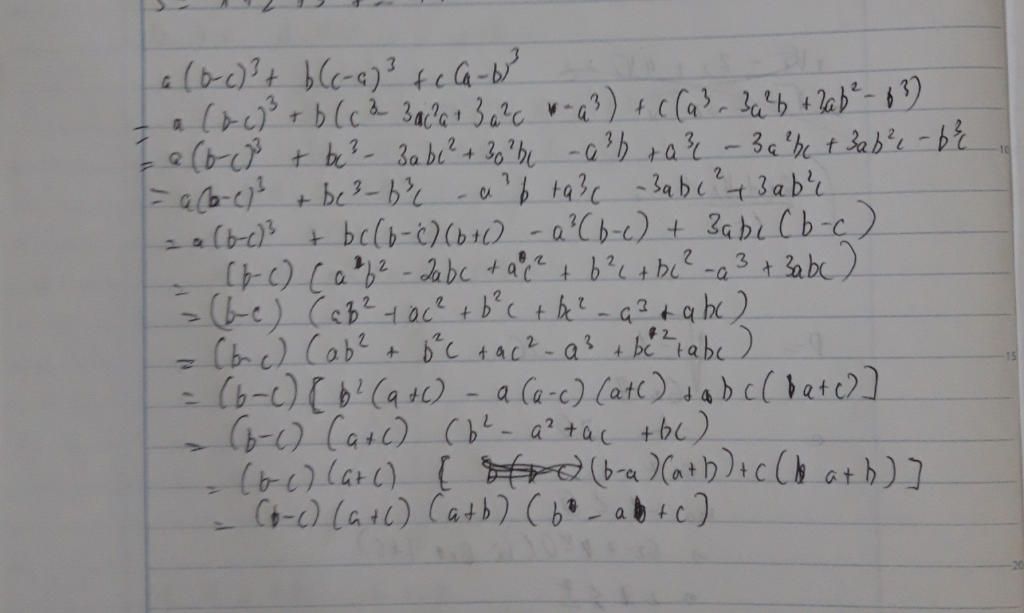 a(b-c)³ + b(c-a)³ + c(a-b)³
= a(b-c)³ + b(c³ - 3ac²a + 3a²c - a³) + c(a³ - 3a²b + 3ab² - b³)
= a(b-c)³ + bc³ - 3abc² + 3a²bc - a³b + a³c - 3a²bc + 3ab²c - b³c
= a(b-c)³ + bc³ - b³c - a³b + a³c - 3abc² + 3ab²c
= a(b-c)³ + bc(b-c)(b+c) - a³(b-c) + 3abc(b-c)
= (b-c)(a b² - 2abc + ac² + b²c + bc² - a³ + 3abc)
= (b-c)(ab² + ac² + b²c + bc² - a³ + abc)
= (b-c)(ab² + b²c + ac² - a³ + bc² + abc)
= (b-c)[b²(a+c) - a(a-c)(a+c) + bc(a+c)]
= (b-c)(a+c)(b² - a² + ac + bc)
= (b-c)(a+c)[(b-a)(a+b) + c(a+b)]
= (b-c)(a+c)(a+b)(b - a + c]
10
15
20